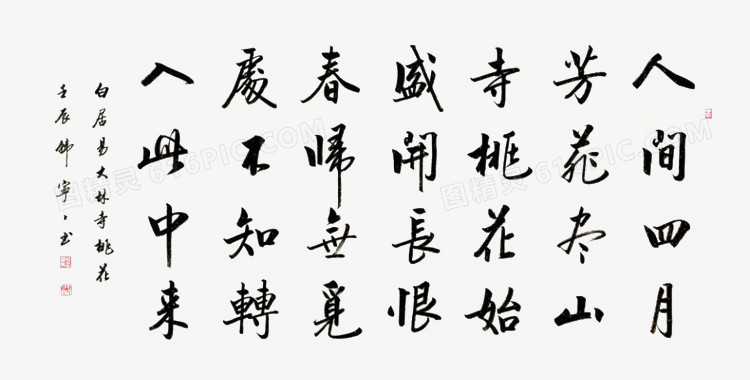 人間四月
芳菲尽山
寺桃花始
盛開長恨
春歸無覓
處不知轉
入此中来
白居易大林寺桃花
壬辰
图精灵 616PIC.COM